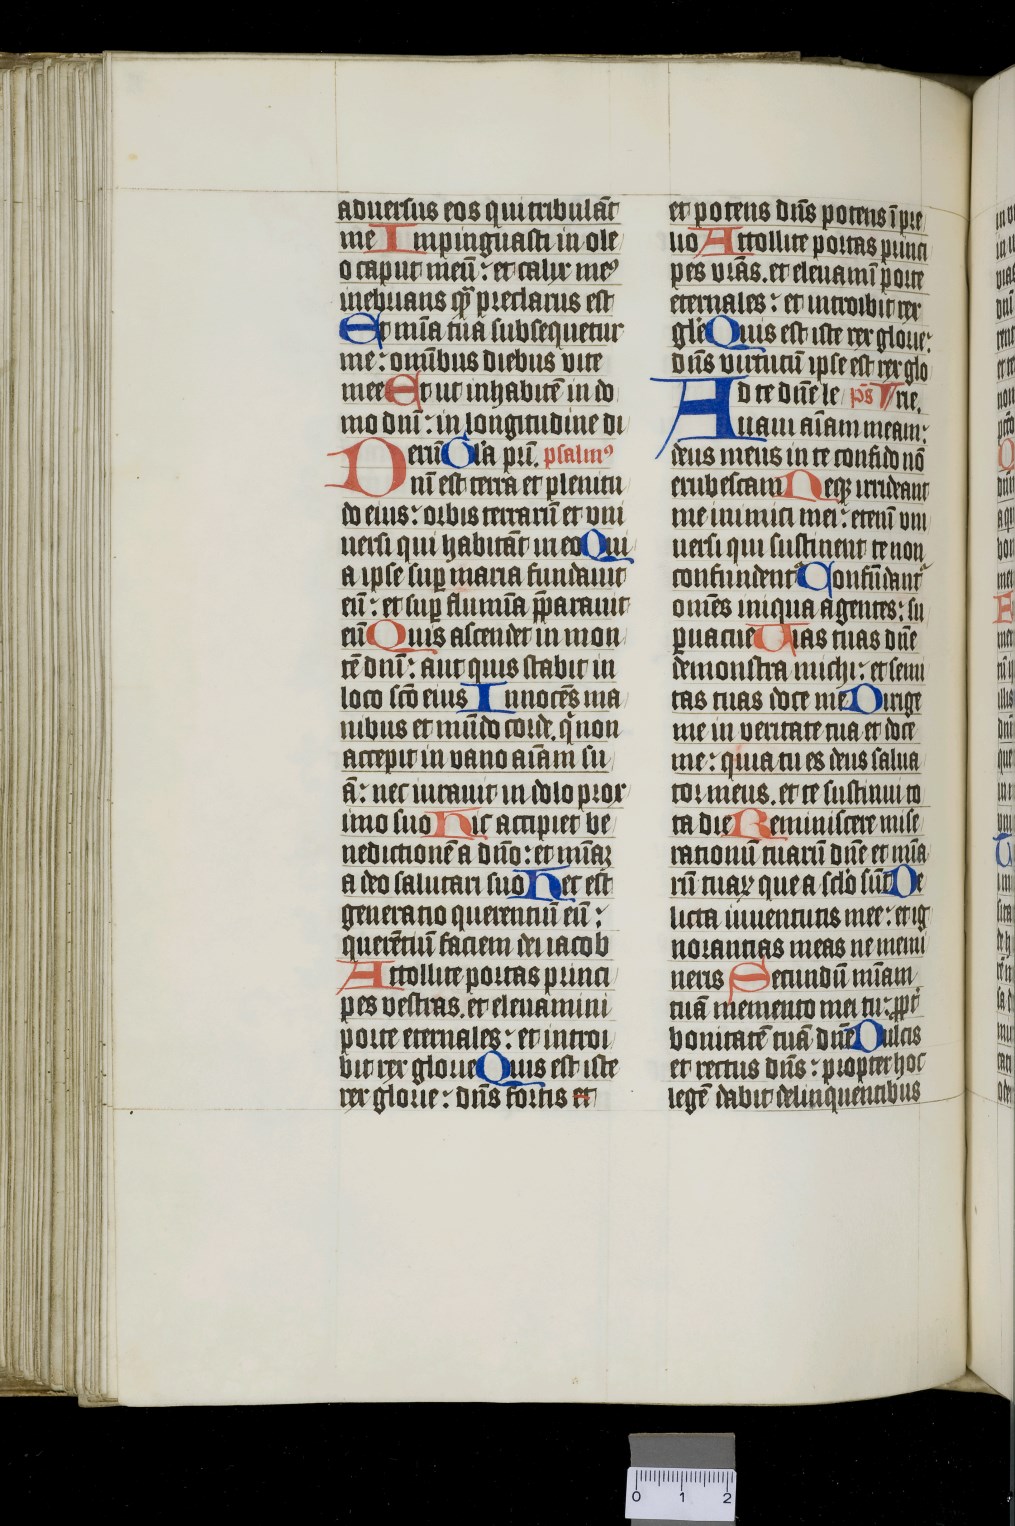 aduersus eos qui tribulāt
me Impinguasti in ole
o caput meū : et calix meꝰ
inebrians qͣ preclarus est
Et mīa tua subsequetur
me : omībus diebus vite
mee Et ut inhabitē in do
mo dnī : in longitudine di
erū Glīa prī. psalmꝰ
Dnī est terra et plenitu
do eius : orbis terrarū et vni
uersi qui habitāt in eo Qui
a ipse suꝑ maria fundauit
eū : et suꝑ flumīa p̄parauit
eū Quis ascendet in mon
tē dnī : aut quis stabit in
loco scō eius Innocēs ma
nibus et mūdo corde. qͥ non
accepit in vano aīam su
ā : nec iurauit in dolo prox
imo suo Hic accipiet be
nedictionē a dnō : et mīaꝫ
a deo salutari suo Hec est
generatio querentiū eū :
querētiū faciem dei iacob
Attollite portas princi
pes vestras. et eleuamini
porte eternales : et introi
bit rex glorie Quis est iste
rex glorie : dn̄s fortis et
et potens dn̄s potens ī pre
lio Attollite portas princi
pes vrās. et eleuamī porte
eternales : et introibit rex
glīe Quis est iste rex glorie :
dn̄s virtutū ipse est rex glo
Ad te dn̄e le p̄s rie.
uaui aīam meam :
deus meus in te confido nō
erubescam Neqꝫ irrideant
me inimici mei : etenī vni
uersi qui sustinent te non
confundentᷣ Confūdantᷣ
omēs iniqua agentes : su
ꝑuacue Uias tuas dn̄e
demonstra michi : et semi
tas tuas doce me Dirige
me in veritate tua et doce
me : quia tu es deus salua
tor meus. et te sustinui to
ta die Reminiscere mise
rationū tuarū dn̄e et mīa
rū tuaꝝ que a sclō sūt De
licta iuuentutis mee : et ig
norantias meas ne memi
neris Secundū mīam
tuā memento mei tu : ꝓpt̄
bonitatē tuā dn̄e Dulcis
et rectus dn̄s : propter hoc
legē dabit delinquentibus